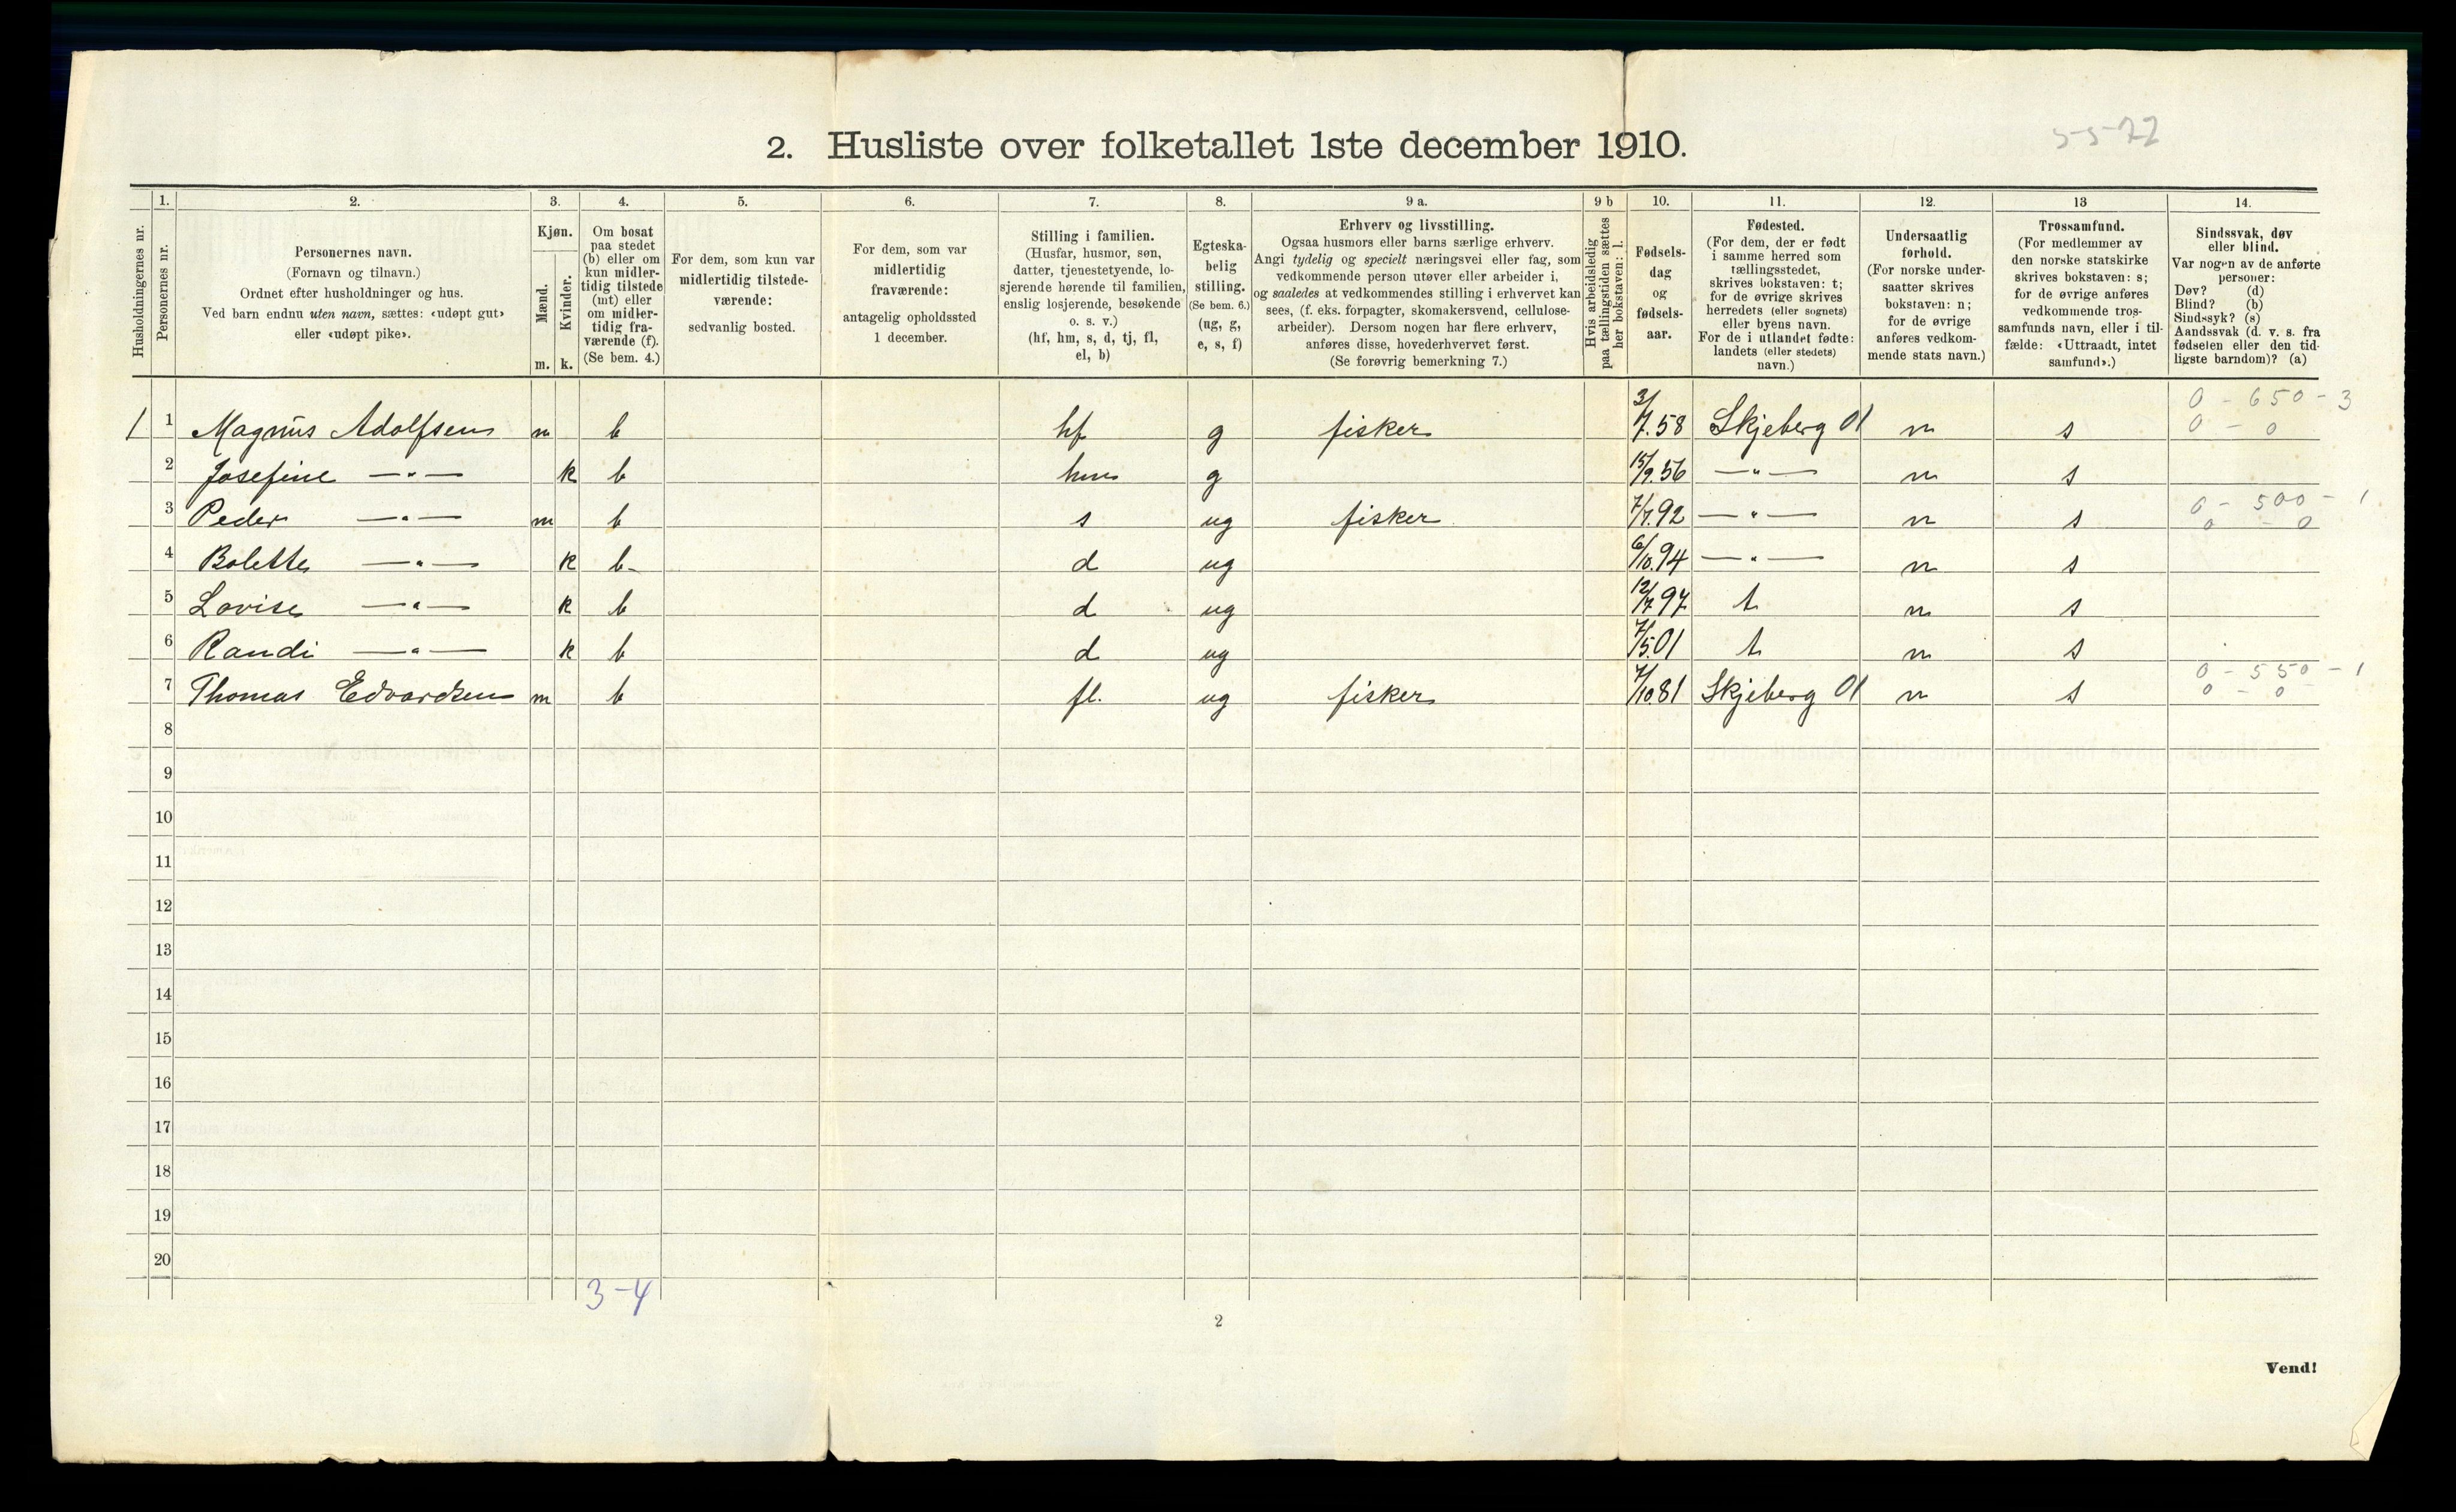 5-5-22
2. Husliste over folketallet 1ste december 1910.
Husholdningernes nr.
1. Personernes nr.
2. Personernes navn.
(Fornavn og tilnavn.)
Ordnet efter husholdninger og hus.
Ved barn endnu uten navn, sættes: «udøpt gut»
eller «udøpt pike».
3. Kjøn.
Mænd. m.
Kvinder. k.
4. Om bosat
paa stedet
(b) eller om
kun midler-
tidig tilstede
(mt) eller
om midler-
tidig fra-
værende (f).
(Se bem. 4.)
5. For dem, som kun var
midlertidig tilstede-
værende:
sedvanlig bosted.
6. For dem, som var
midlertidig
fraværende:
antagelig opholdssted
1 december.
7. Stilling i familien.
(Husfar, husmor, søn,
datter, tjenestetyende, lo-
sjerende hørende til familien,
enslig losjerende, besøkende
o. s. v.)
(hf, hm, s, d, tj, fl,
el, b)
8. Egteska-
belig
stilling.
(Se bem. 6.)
(ug, g,
e, s, f)
9 a. Erhverv og livsstilling.
Ogsaa husmors eller barns særlige erhverv.
Angi tydelig og specielt næringsvei eller fag, som
vedkommende person utøver eller arbeider i,
og saaledes at vedkommendes stilling i erhvervet kan
sees, (f. eks. forpagter, skomakersvend, cellulose-
arbeider). Dersom nogen har flere erhverv,
anføres disse, hovederhvervet først.
(Se forøvrig bemerkning 7.)
9 b Hvis arbeidsledig
paa tællingstiden sættes
her bokstaven: l.
10. Fødsels-
dag
og
fødsels-
aar.
11. Fødested.
(For dem, der er født
i samme herred som
tællingsstedet,
skrives bokstaven: t;
for de øvrige skrives
herredets (eller sognets)
eller byens navn.
For de i utlandet fødte:
landets (eller stedets)
navn.)
12. Undersaatlig
forhold.
(For norske under-
saatter skrives
bokstaven: n;
for de øvrige
anføres vedkom-
mende stats navn.)
13 Trossamfund.
(For medlemmer av
den norske statskirke
skrives bokstaven: s;
for de øvrige anføres
vedkommende tros-
samfunds navn, eller i til-
fælde: «Uttraadt, intet
samfund».)
14. Sindssvak, døv
eller blind.
Var nogen av de anførte
personer:
Døv? (d)
Blind? (b)
Sindssyk? (s)
Aandssvak (d. v. s. fra
fødselen eller den tid-
ligste barndom)? (a)
1 1 Magnus Adolfsen m b hf g fisker 3/7.58 Skjeberg 01 n s 0 - 650 - 3
0 - 0
2 Josefine —"— k b hm g 15/9.56 —"— n s
3 Peder —"— m b s ug fisker 7/7.92 —"— n s 0 - 500 - 1
0 - 0
4 Bolette —"— k b- d ug 6/10.94 —"— n s
5 Lovise —"— k b d ug 12/7.97 t n s
6 Randi —"— k b d ug 7/5.01 t n s
7 Thomas Edvardsen m b fl. ug fisker 7/10.81 Skjeberg 01 n s 0 - 550 - 1
0 - 0
8
9
10
11
12
13
14
15
16
17
18
19
20
3-4
2
Vend!